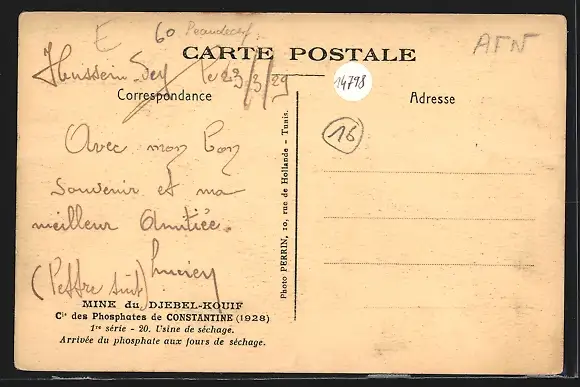 E 60 AFN
CARTE POSTALE
Hussein-Dey le 23/3/29
14798
Correspondance
Adresse
16
Avec mon bon
souvenir et ma
meilleur Amitiée.
Lucien
(Lettre suit)
MINE du DJEBEL-KOUIF
Cie des Phosphates de CONSTANTINE (1928)
1re série - 20. Usine de séchage.
Arrivée du phosphate aux fours de séchage.
Photo PERRIN, 10, rue de Hollande - Tunis.